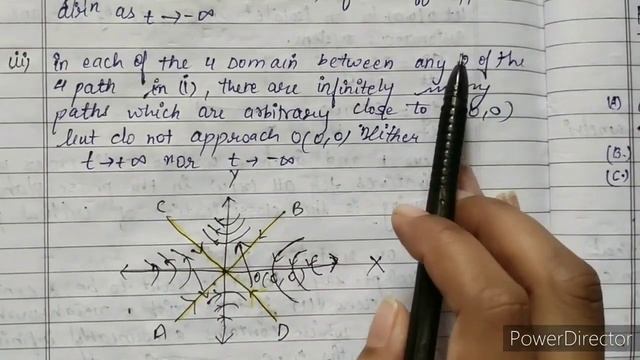 as t→-∞
iii) in each of the 4 Domain between any of the
4 path in (i), there are infinitely many
paths which are arbitrary close to 0,0)
but do not approach O(0,0) Neither
t→+∞ nor t→-∞
Y
C B
O(0,0) X
A D
(B.)
(C.)
PowerDirector